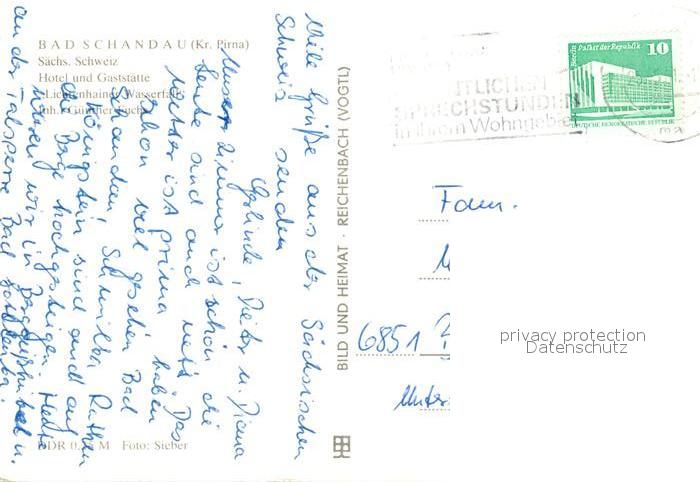 BAD SCHANDAU (Kr. Pirna)
Sächs. Schweiz
Hotel und Gaststätte
"Lichtenhainer Wasserfall"
Inh.: Günther
DDR 0, M Foto: Sieber
Viele Grüße aus der Sächsischen
Schweiz senden
Gerlinde, Dieter u. Diana
Unser Zimmer ist schön die
Leute sind auch nett. Das
Wetter ist prima haben
schon viel gesehen Bad
Schandau, Schmilka, Rathen
Königstein sind auch auf
die Berge hochgestiegen. Heute
waren wir in u.
an der Talsperre Bad Gottleuba.
BILD UND HEIMAT · REICHENBACH (VOGTL)
TLICHEN
SPRECHSTUNDEN
in Ihrem Wohngebiet
Berlin Palast der Republik
10
DEUTSCHE DEMOKRATISCHE REPUBLIK
Fam.
6851
Unter
privacy protection
Datenschutz